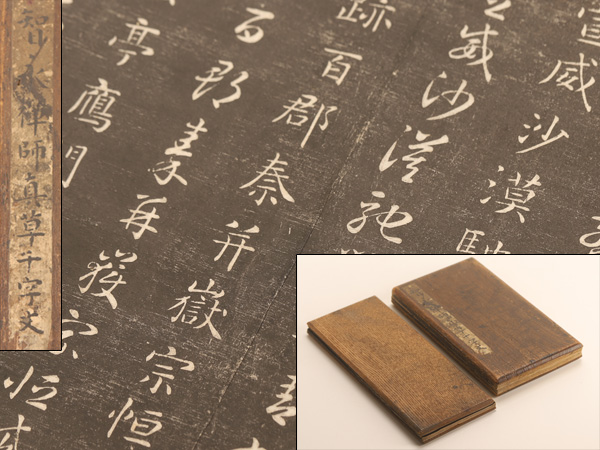 智永禪師真草千字文
宣威沙漠馳
威沙漠馳
跡百郡秦并嶽宗恒
百郡秦并嶽宗恒
亭鴈門